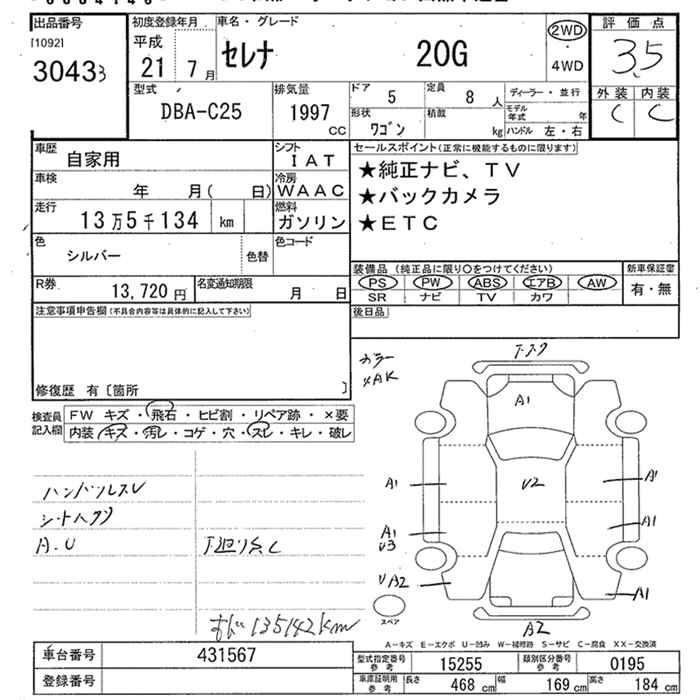 出品番号 初度登録年月 車名・グレード 評価点
[1092] 平成 セレナ 20G 2WD 3.5
30433 21年 7月 4WD 外装 内装
C C
型式 排気量 ドア 5 定員 8人 ディーラー・並行
DBA-C25 1997CC 形状 ワゴン 積載 kg モデル年式 年
ハンドル 左・右
車歴 自家用 シフト IAT セールスポイント(正常に機能するものに限ります)
車検 年 月( 日) 冷房 WAAC ★純正ナビ、TV
走行 13万5千134 km 燃料 ガソリン ★バックカメラ
色 シルバー 色替 色コード ★ETC
R券 13,720円 名変通知期限 月 日
装備品(純正品に限り○をつけてください) 新車保証書
PS PW ABS エアB AW 有・無
SR ナビ TV カワ
注意事項申告欄(不具合内容等は具体的に記入して下さい) 後日品
修復歴 有〔箇所 〕
検査員記入欄 FW キズ・飛石・ヒビ割・リペア跡・×要
内装・キズ・汚レ・コゲ・穴・スレ・キレ・破レ
カラー
K4K
A1
A1 U2 A1
A1 A1
U3
UA2 A1
A2
ハンドルスレ
A.U
135142km
スペア
A-キズ E-エクボ U-凹み W-補修跡 S-サビ C-腐食 XX-交換済
車台番号 431567 型式指定番号参考 15255 類別区分番号参考 0195
登録番号 車庫証明用参考 長さ 468cm 幅 169cm 高さ 184cm